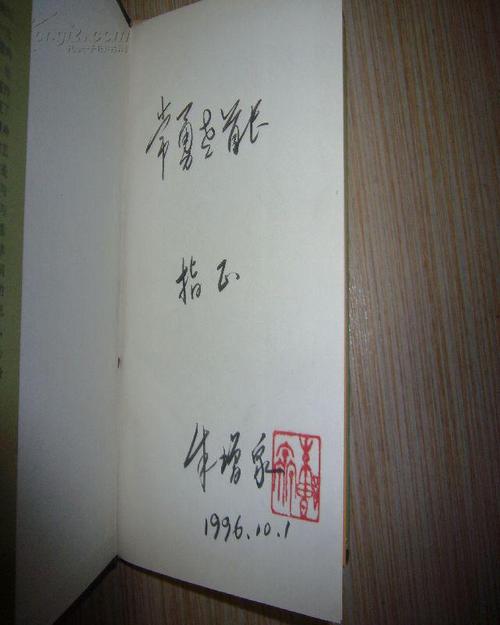 常勇老首长
指正
朱增泉
1996.10.1